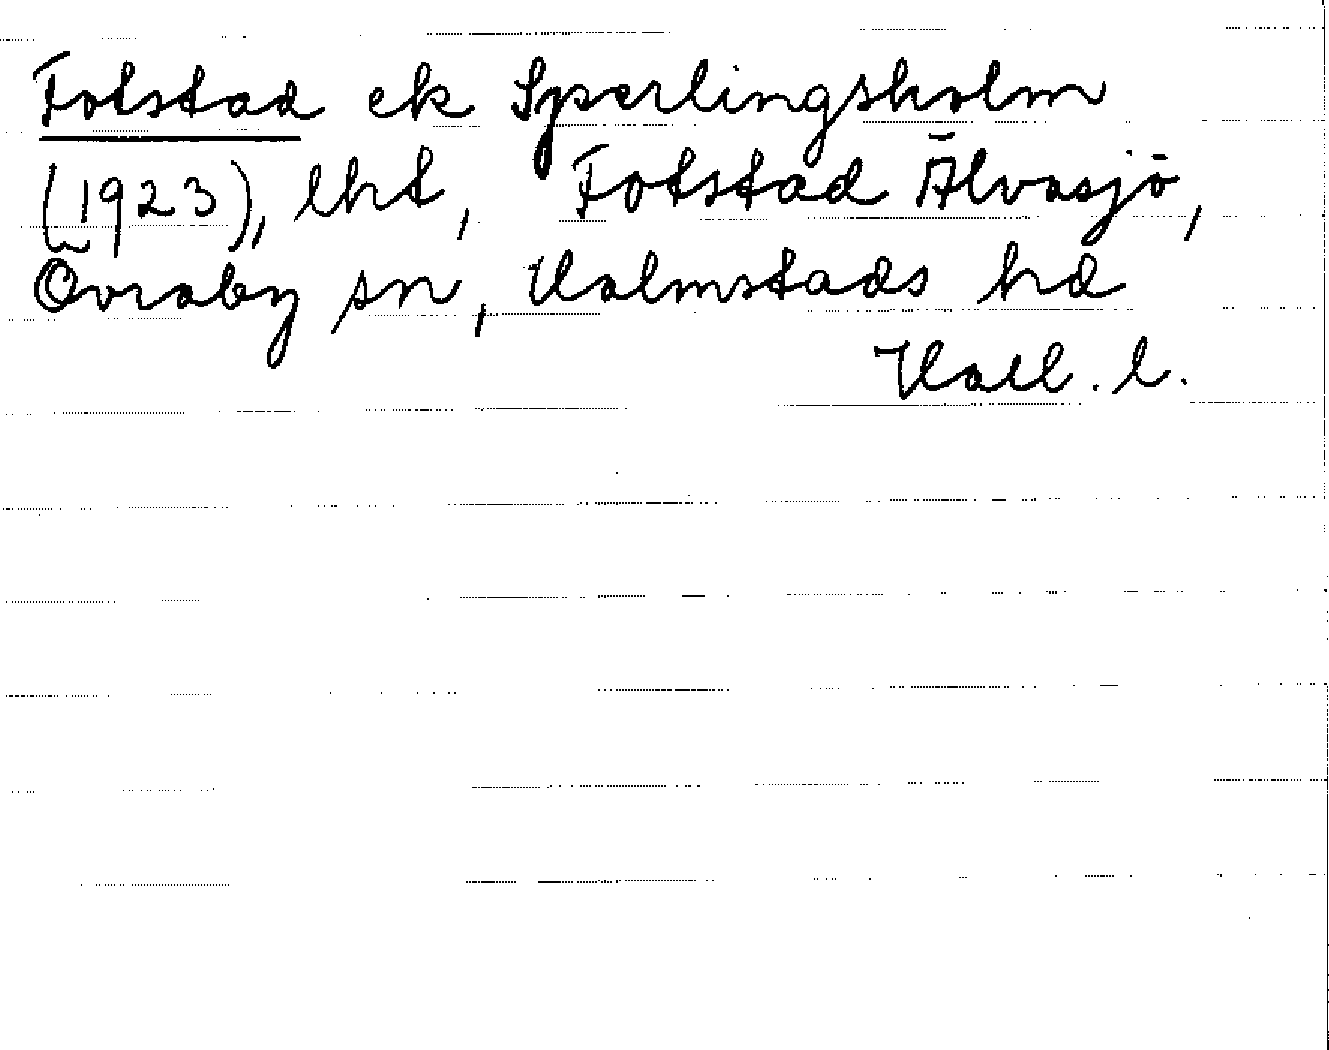 Fotstad ek Sperlingsholm
(1923), lht, Fotstad Älvasjö,
Övraby sn, Halmstads hd
Hall. l.